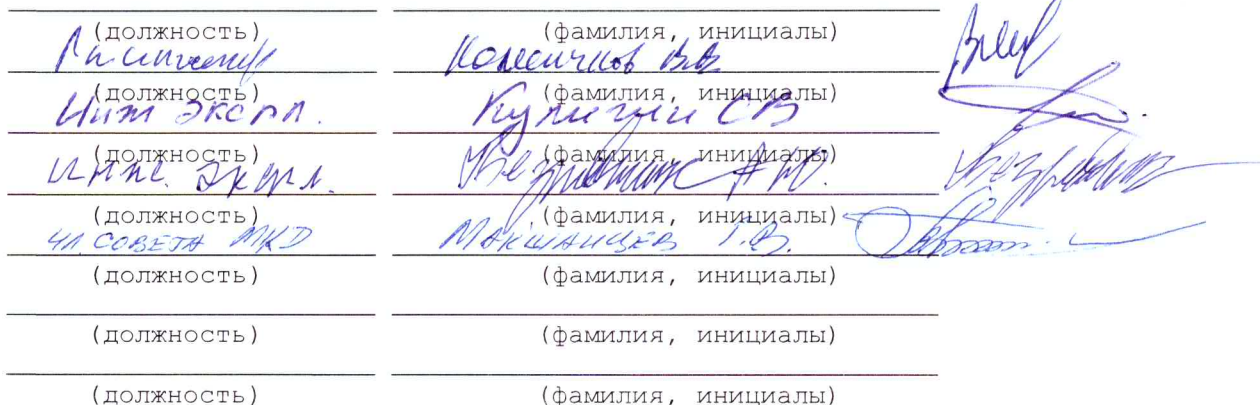 (должность) (фамилия, инициалы)
Гл инженер Колесников В.В.
(должность) (фамилия, инициалы)
Инж экспл. Кулигин СВ
(должность) (фамилия, инициалы)
инж. экспл. А Ю.
(должность) (фамилия, инициалы)
чл. СОВЕТА МКД МАКШАНЦЕВ Г.В.
(должность) (фамилия, инициалы)
(должность) (фамилия, инициалы)
(должность) (фамилия, инициалы)